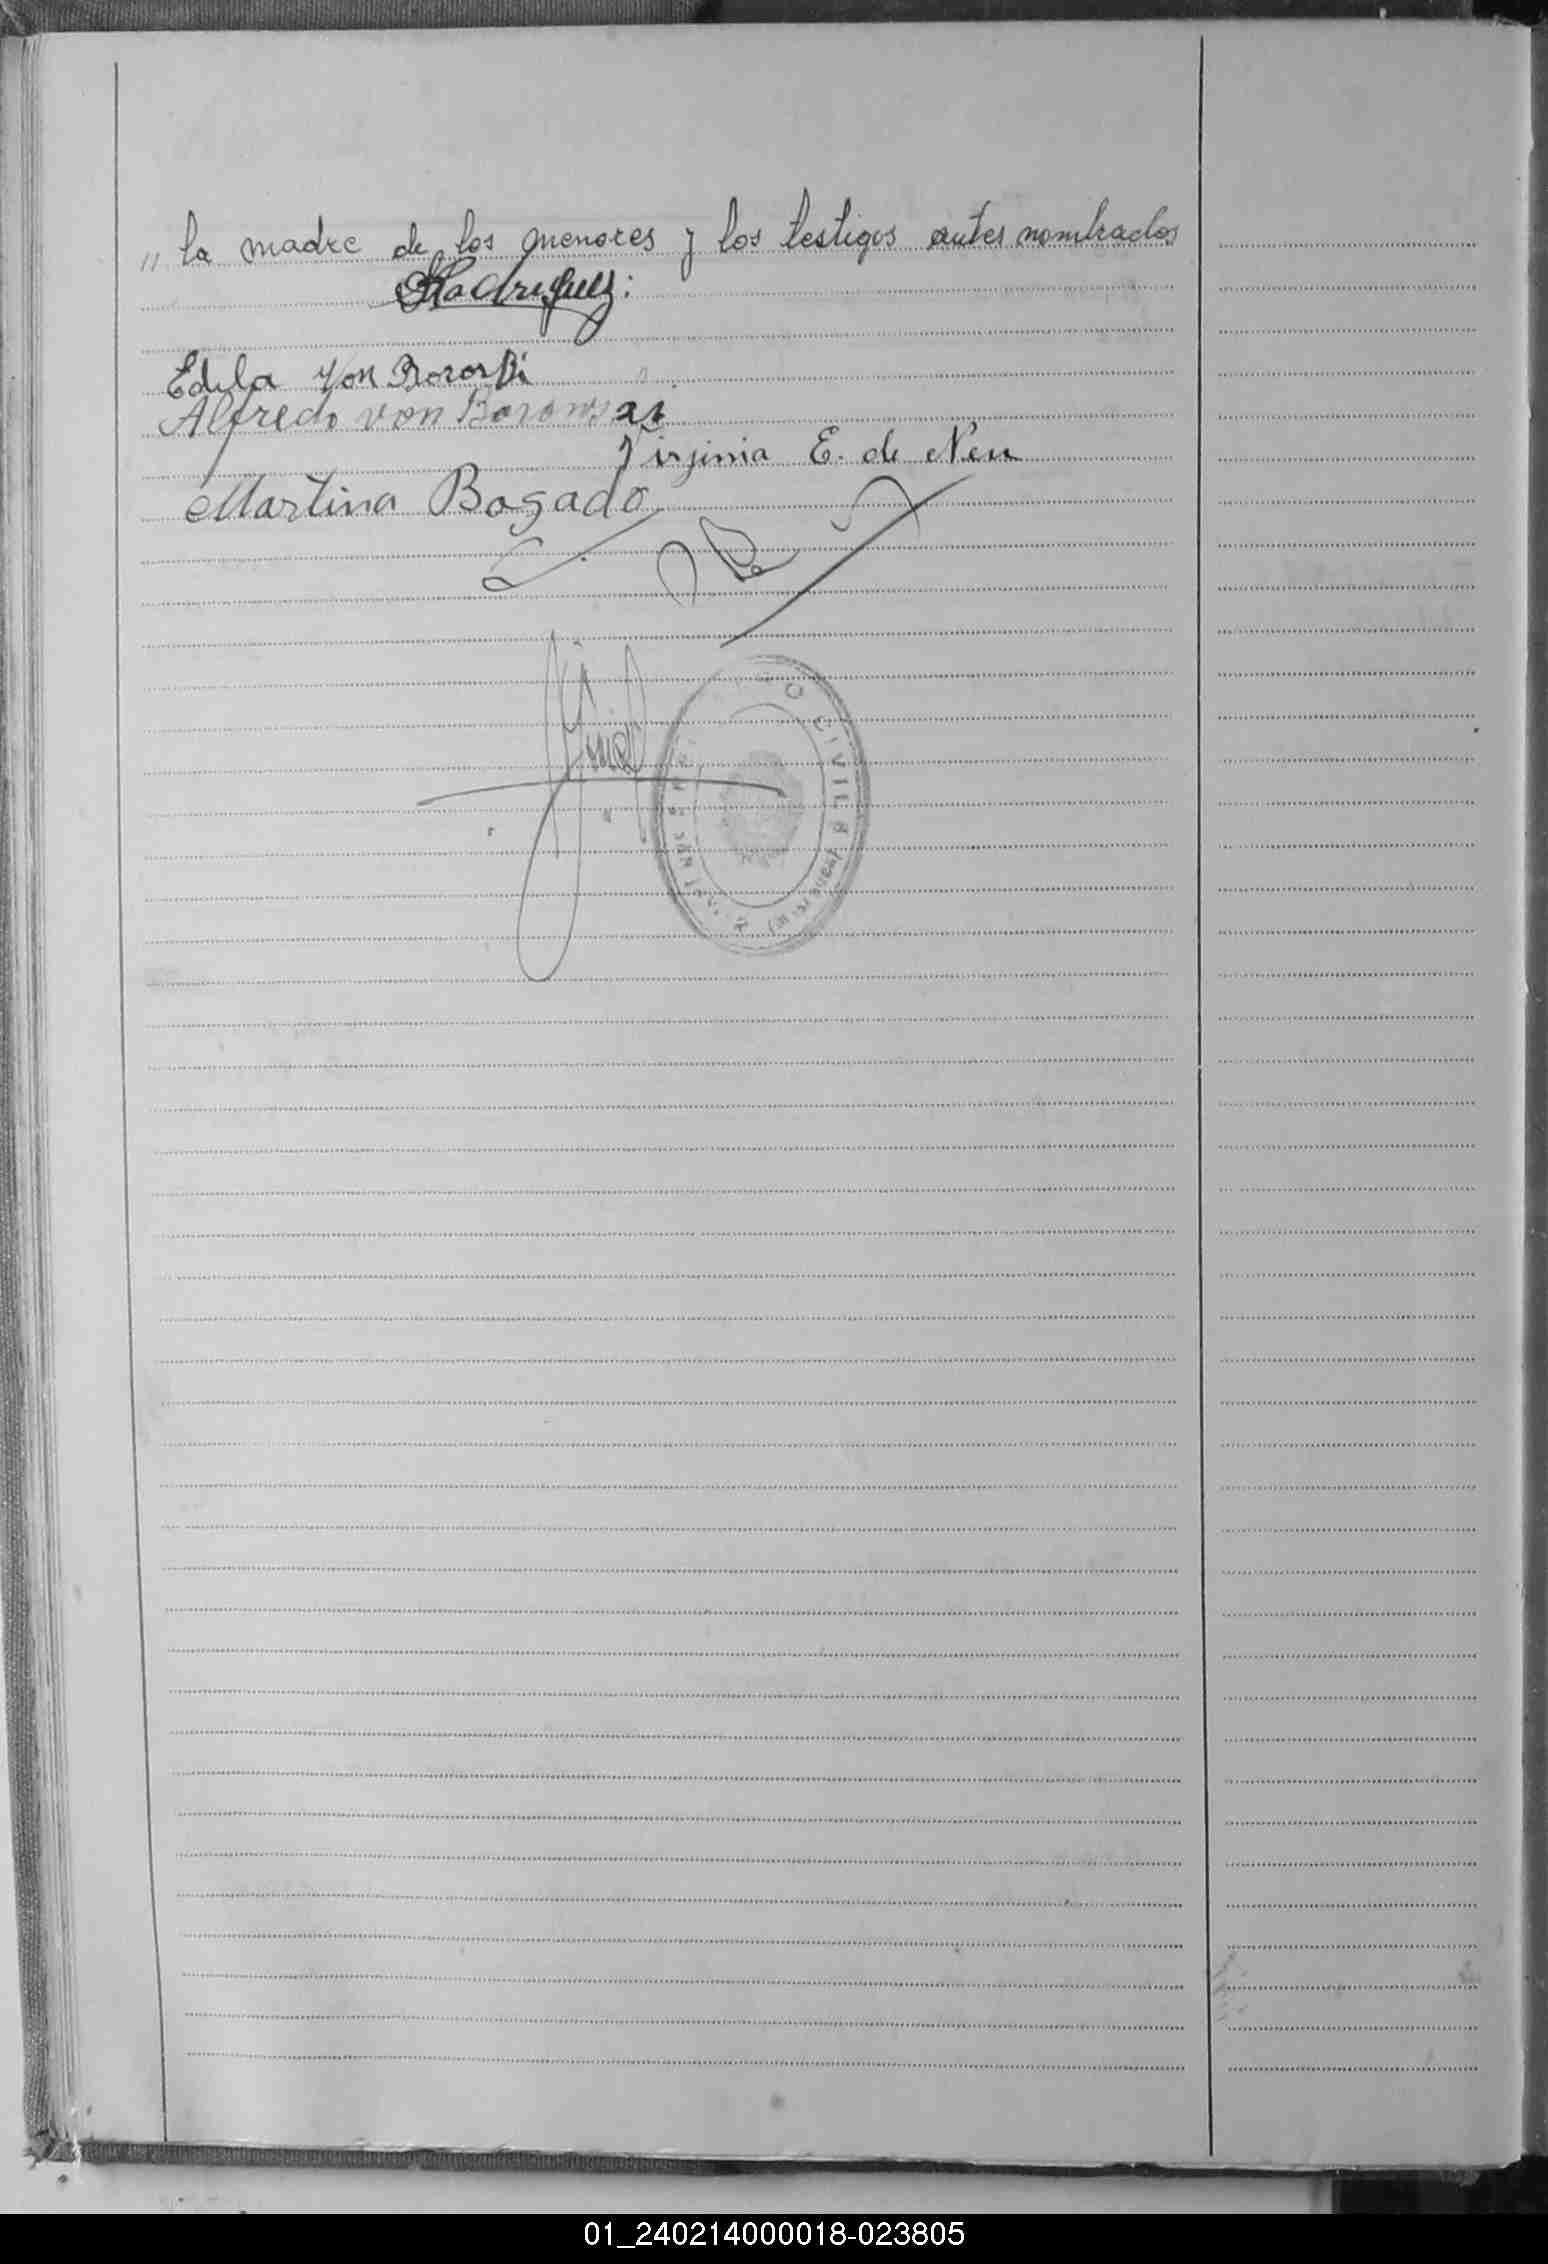 " la madre de los menores y los testigos antes nombrados
Rodriguez:
Edila Von Bororski
Alfredo von Borowski
Virginia E. de Neu
Martina Bogado
O CIVIL
01_240214000018-023805